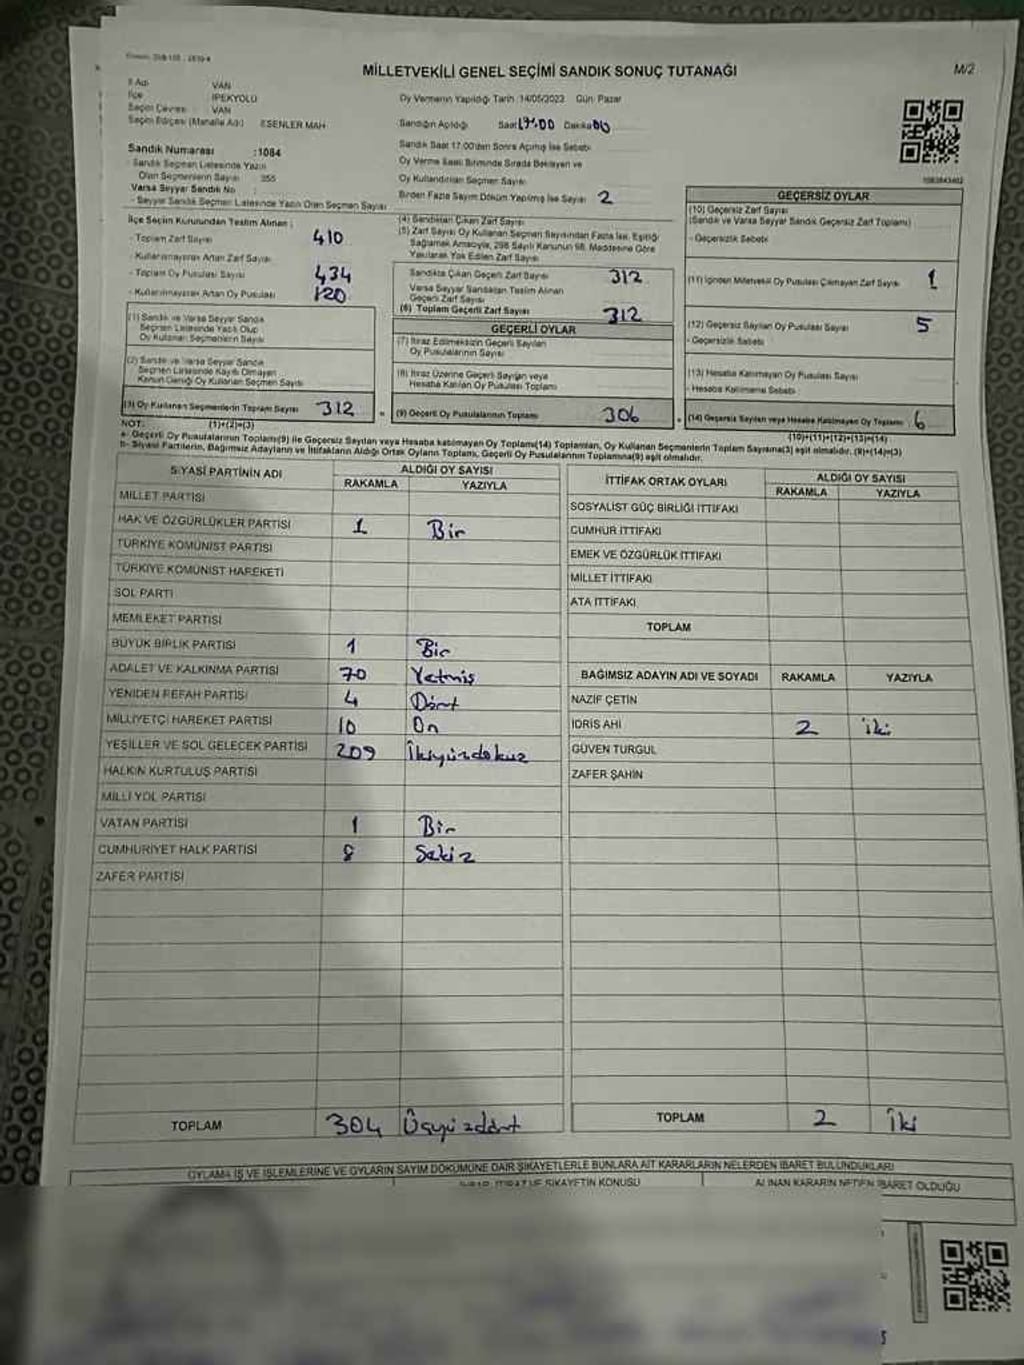 MİLLETVEKİLİ GENEL SEÇİMİ SANDIK SONUÇ TUTANAĞI
M/2
İl Adı VAN
İlçe İPEKYOLU
Seçim Çevresi VAN
Seçim Bölgesi (Mahalle Adı) ESENLER MAH
Oy Vermenin Yapıldığı Tarih :14/05/2023 Gün: Pazar
Sandığın Açıldığı Saat 17:00 Dakika 00
Sandık Saat 17:00'den Sonra Açılmış İse Sebebi
Oy Verme Saati Bitiminde Sırada Bekleyen ve
Oy Kullandırılan Seçmen Sayısı
Birden Fazla Sayım Döküm Yapılmış İse Sayısı 2
Sandık Numarası :1084
Sandık Seçmen Listesinde Yazılı
Olan Seçmenlerin Sayısı 355
Varsa Seyyar Sandık No :
- Seyyar Sandık Seçmen Listesinde Yazılı Olan Seçmen Sayısı
İlçe Seçim Kurulundan Teslim Alınan :
- Toplam Zarf Sayısı 410
- Kullanılmayarak Artan Zarf Sayısı
- Toplam Oy Pusulası Sayısı 434
- Kullanılmayarak Artan Oy Pusulası 120
(1) Sandık ve Varsa Seyyar Sandık
Seçmen Listesinde Yazılı Olup
Oy Kullanan Seçmenlerin Sayısı
(2) Sandık ve Varsa Seyyar Sandık
Seçmen Listesinde Kayıtlı Olmayan
Kanun Gereği Oy Kullanan Seçmen Sayısı
(3) Oy Kullanan Seçmenlerin Toplam Sayısı 312
(1)+(2)=(3)
(4) Sandıktan Çıkan Zarf Sayısı
(5) Zarf Sayısı Oy Kullanan Seçmen Sayısından Fazla İse, Eşitliği
Sağlamak Amacıyla, 298 Sayılı Kanunun 98. Maddesine Göre
Yakılarak Yok Edilen Zarf Sayısı
Sandıkta Çıkan Geçerli Zarf Sayısı 312
Varsa Seyyar Sandıktan Teslim Alınan
Geçerli Zarf Sayısı
(6) Toplam Geçerli Zarf Sayısı 312
GEÇERLİ OYLAR
(7) İtiraz Edilmeksizin Geçerli Sayılan
Oy Pusulalarının Sayısı
(8) İtiraz Üzerine Geçerli Sayılan veya
Hesaba Katılan Oy Pusulası Toplamı
= (9) Geçerli Oy Pusulalarının Toplamı 306
GEÇERSİZ OYLAR
(10) Geçersiz Zarf Sayısı
(Sandık ve Varsa Seyyar Sandık Geçersiz Zarf Toplamı)
- Geçersizlik Sebebi
(11) İçinden Milletvekili Oy Pusulası Çıkmayan Zarf Sayısı 1
(12) Geçersiz Sayılan Oy Pusulası Sayısı 5
- Geçersizlik Sebebi
(13) Hesaba Katılmayan Oy Pusulası Sayısı
- Hesaba Katılmama Sebebi
+ (14) Geçersiz Sayılan veya Hesaba Katılmayan Oy Toplamı 6
(10)+(11)+(12)+(13)=(14)
NOT:
a- Geçerli Oy Pusulalarının Toplamı(9) ile Geçersiz Sayılan veya Hesaba katılmayan Oy Toplamı(14) Toplamları, Oy Kullanan Seçmenlerin Toplam Sayısına(3) eşit olmalıdır. (9)+(14)=(3)
b- Siyasi Partilerin, Bağımsız Adayların ve İttifakların Aldığı Ortak Oyların Toplamı, Geçerli Oy Pusulalarının Toplamına(9) eşit olmalıdır.
SİYASİ PARTİNİN ADI ALDIĞI OY SAYISI
RAKAMLA YAZIYLA
MİLLET PARTİSİ
HAK VE ÖZGÜRLÜKLER PARTİSİ 1 Bir
TÜRKİYE KOMÜNİST PARTİSİ
TÜRKİYE KOMÜNİST HAREKETİ
SOL PARTİ
MEMLEKET PARTİSİ
BÜYÜK BİRLİK PARTİSİ 1 Bir
ADALET VE KALKINMA PARTİSİ 70 Yetmiş
YENİDEN REFAH PARTİSİ 4 Dört
MİLLİYETÇİ HAREKET PARTİSİ 10 On
YEŞİLLER VE SOL GELECEK PARTİSİ 209 İkiyüzdokuz
HALKIN KURTULUŞ PARTİSİ
MİLLİ YOL PARTİSİ
VATAN PARTİSİ 1 Bir
CUMHURİYET HALK PARTİSİ 8 Sekiz
ZAFER PARTİSİ
TOPLAM 304 Üçyüzdört
İTTİFAK ORTAK OYLARI ALDIĞI OY SAYISI
RAKAMLA YAZIYLA
SOSYALİST GÜÇ BİRLİĞİ İTTİFAKI
CUMHUR İTTİFAKI
EMEK VE ÖZGÜRLÜK İTTİFAKI
MİLLET İTTİFAKI
ATA İTTİFAKI
TOPLAM
BAĞIMSIZ ADAYIN ADI VE SOYADI RAKAMLA YAZIYLA
NAZİF ÇETİN
İDRİS AHİ 2 iki
GÜVEN TURGUL
ZAFER ŞAHİN
TOPLAM 2 İki
OYLAMA İŞ VE İŞLEMLERİNE VE OYLARIN SAYIM DÖKÜMÜNE DAİR ŞİKAYETLERLE BUNLARA AİT KARARLARIN NELERDEN İBARET BULUNDUKLARI
İTİRAZ VE ŞİKAYETİN KONUSU
ALINAN KARARIN NEDEN İBARET OLDUĞU